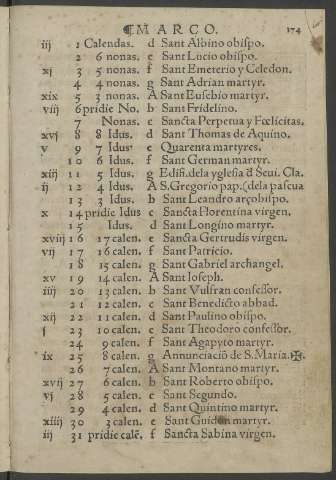 ¶MARCO. 174
iij 1 Calendas. d Sant Albino obispo.
2 6 nonas. e Sant Lucio obispo.
xj 3 5 nonas. f Sant Emeterio y Celedon.
4 4 nonas. g Sant Adrian martyr.
xix 5 3 nonas. A Sant Eusebio martyr.
viij 6 pridie No. b Sant Fridelino.
7 Nonas. c Sancta Perpetua y Fœlicitas.
xvj 8 8 Idus. d Sant Thomas de Aquino.
v 9 7 Idus. e Quarenta martyres.
10 6 Idus. f Sant German martyr.
xiij 11 5 Idus. g Edifi. dela yglesia đ Seui. Cla.
ij 12 4 Idus. A S. Gregorio pap. (dela pascua
13 3 Idus. b Sant Leandro arçobispo.
x 14 pridie Idus c Sancta Florentina virgen.
15 Idus. d Sant Longino martyr.
xviij 16 17 calen. e Sancta Gertrudis virgen.
vij 17 16 calen. f Sant Patricio.
18 15 calen. g Sant Gabriel archangel.
xv 19 14 calen. A Sant Ioseph.
iiij 20 13 calen. b Sant Vulfran confessor.
21 12 calen. c Sant Benedicto abbad.
xij 22 11 calen. d Sant Paulino obispo.
j 23 10 calen. e Sant Theodoro confessor.
24 9 calen. f Sant Agapyto martyr.
ix 25 8 calen. g Annunciaciõ de S. Maria. ✠
26 7 calen. A Sant Montano martyr.
xvij 27 6 calen. b Sant Roberto obispo.
vj 28 5 calen. c Sant Segundo.
29 4 calen. d Sant Quintino martyr.
xiiij 30 3 calen. e Sant Guidon martyr.
iij 31 pridie calẽ. f Sancta Sabina virgen.